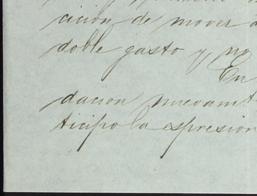 cición de mover a
doble gasto y no
En
dación nuevamt
ticipo la espresion